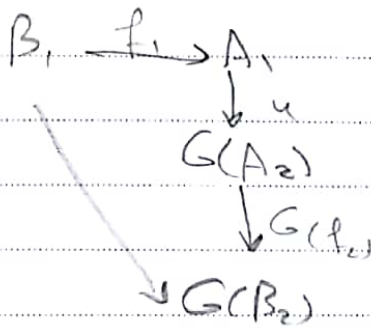 B₁ f₁ A₁
u
G(A₂)
G(f₂)
G(B₂)